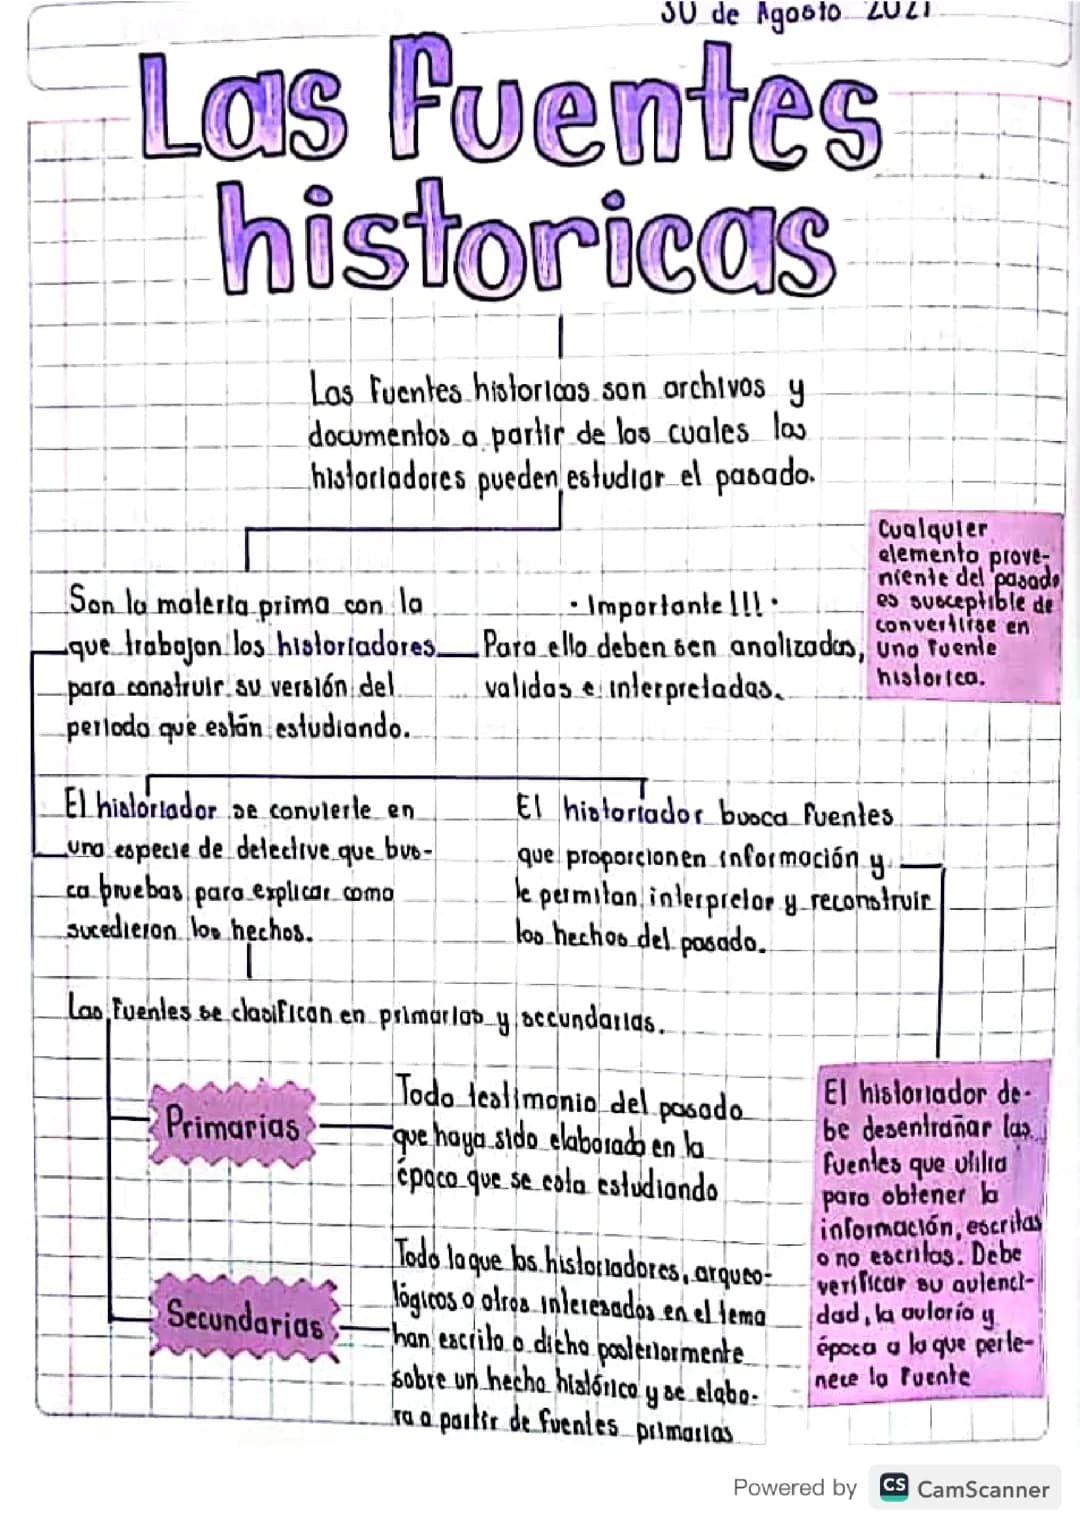 30 de Agosto 2021
Las fuentes
historicas
Las Fuentes historicas son archivos y
documentos a partir de los cuales los
historiadores pueden estudiar el pasado.
Cualquier
elemento prove-
niente del pasado
es susceptible de
convertirse en
una fuente
historica.
Son la materia prima con la
que trabajan los historiadores
para construir su versión del
periodo que están estudiando.
• Importante!!! •
Para ello deben sen analizadas,
validas e interpretadas.
El historiador se convierte en
una especie de detective que bus-
ca pruebas para explicar como
sucedieron los hechos.
El historiador busca fuentes
que proporcionen información y
le permitan interpretar y reconstruir
los hechos del pasado.
Las Fuentes se clasifican en primarias y secundarias.
Primarias
Todo testimonio del pasado
que haya sido elaborado en la
época que se esta estudiando
Secundarias
Todo lo que los historiadores, arqueo-
lógicos o otros interesados en el tema
han escrito o dicho posteriormente
sobre un hecho histórico y se elabo-
ra a partir de fuentes primarias
El historiador de-
be desentrañar las
fuentes que utiliza
para obtener la
información, escritas
o no escritas. Debe
verificar su autenci-
dad, la autoría y
época a la que perte-
nece la fuente
Powered by CS CamScanner